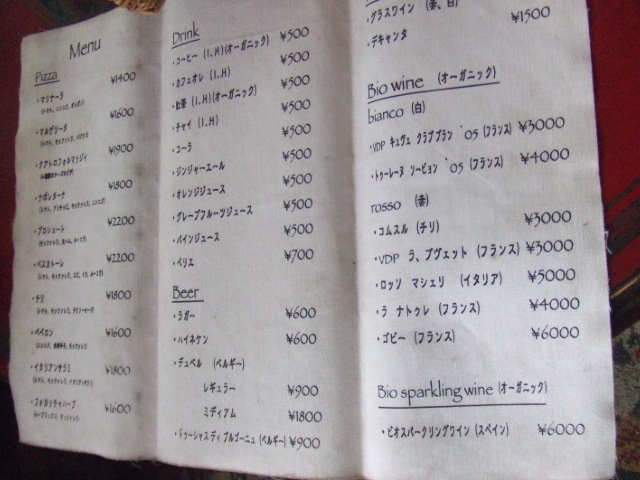 Menu
Pizza
・マリナーラ ¥1400
(トマト、ニンニク、オレガノ)
・マルゲリータ ¥1600
(トマト、モッツァレラ、バジリコ)
・クアトロフォルマッジィ ¥1900
・ナポレターナ ¥1800
(トマト、アンチョビ、モッツァレラ、ニンニク)
・プロシュート ¥2200
(モッツァレラ、生ハム、ルーコラ)
・ペスカトーレ ¥2200
・チリ ¥1800
・ペペロン ¥1600
・イタリアンサラミ ¥1800
(トマト、モッツァレラ、イタリアンサラミ)
・フォカッチャハーブ ¥1600
Drink
・コーヒー (I.H)(オーガニック) ¥500
・カフェオレ (I.H) ¥500
・紅茶 (I.H)(オーガニック) ¥500
・チャイ (I.H) ¥500
・コーラ ¥500
・ジンジャーエール ¥500
・オレンジジュース ¥500
・グレープフルーツジュース ¥500
・パインジュース ¥500
・ペリエ ¥700
Beer
・ラガー ¥600
・ハイネケン ¥600
・デュベル (ベルギー)
レギュラー ¥900
ミディアム ¥1800
・ドゥーシャス ディ ブルゴーニュ (ベルギー) ¥900
・グラスワイン (赤、白)
・デキャンタ ¥1500
Bio wine (オーガニック)
bianco (白)
・VDP キュヴェ クラブブラン '05 (フランス) ¥3000
・トゥーレーヌ ソービョン '05 (フランス) ¥4000
rosso (赤)
・コムスル (チリ) ¥3000
・VDP ラ、プヴェット (フランス) ¥3000
・ロッソ マシェリ (イタリア) ¥5000
・ラ ナトゥレ (フランス) ¥4000
・ゴビー (フランス) ¥6000
Bio sparkling wine (オーガニック)
・ビオスパークリングワイン (スペイン) ¥6000